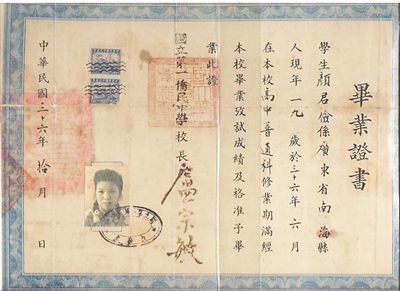 畢業證書
學生顏君儉係廣東省南海縣
人現年一九歲於三十六年六月
在本校高中普通科修業期滿經
本校畢業攷試成績及格准予畢
業此證
國立第一僑民中學校長
盧宗敏
中華民國三十六年拾月　日